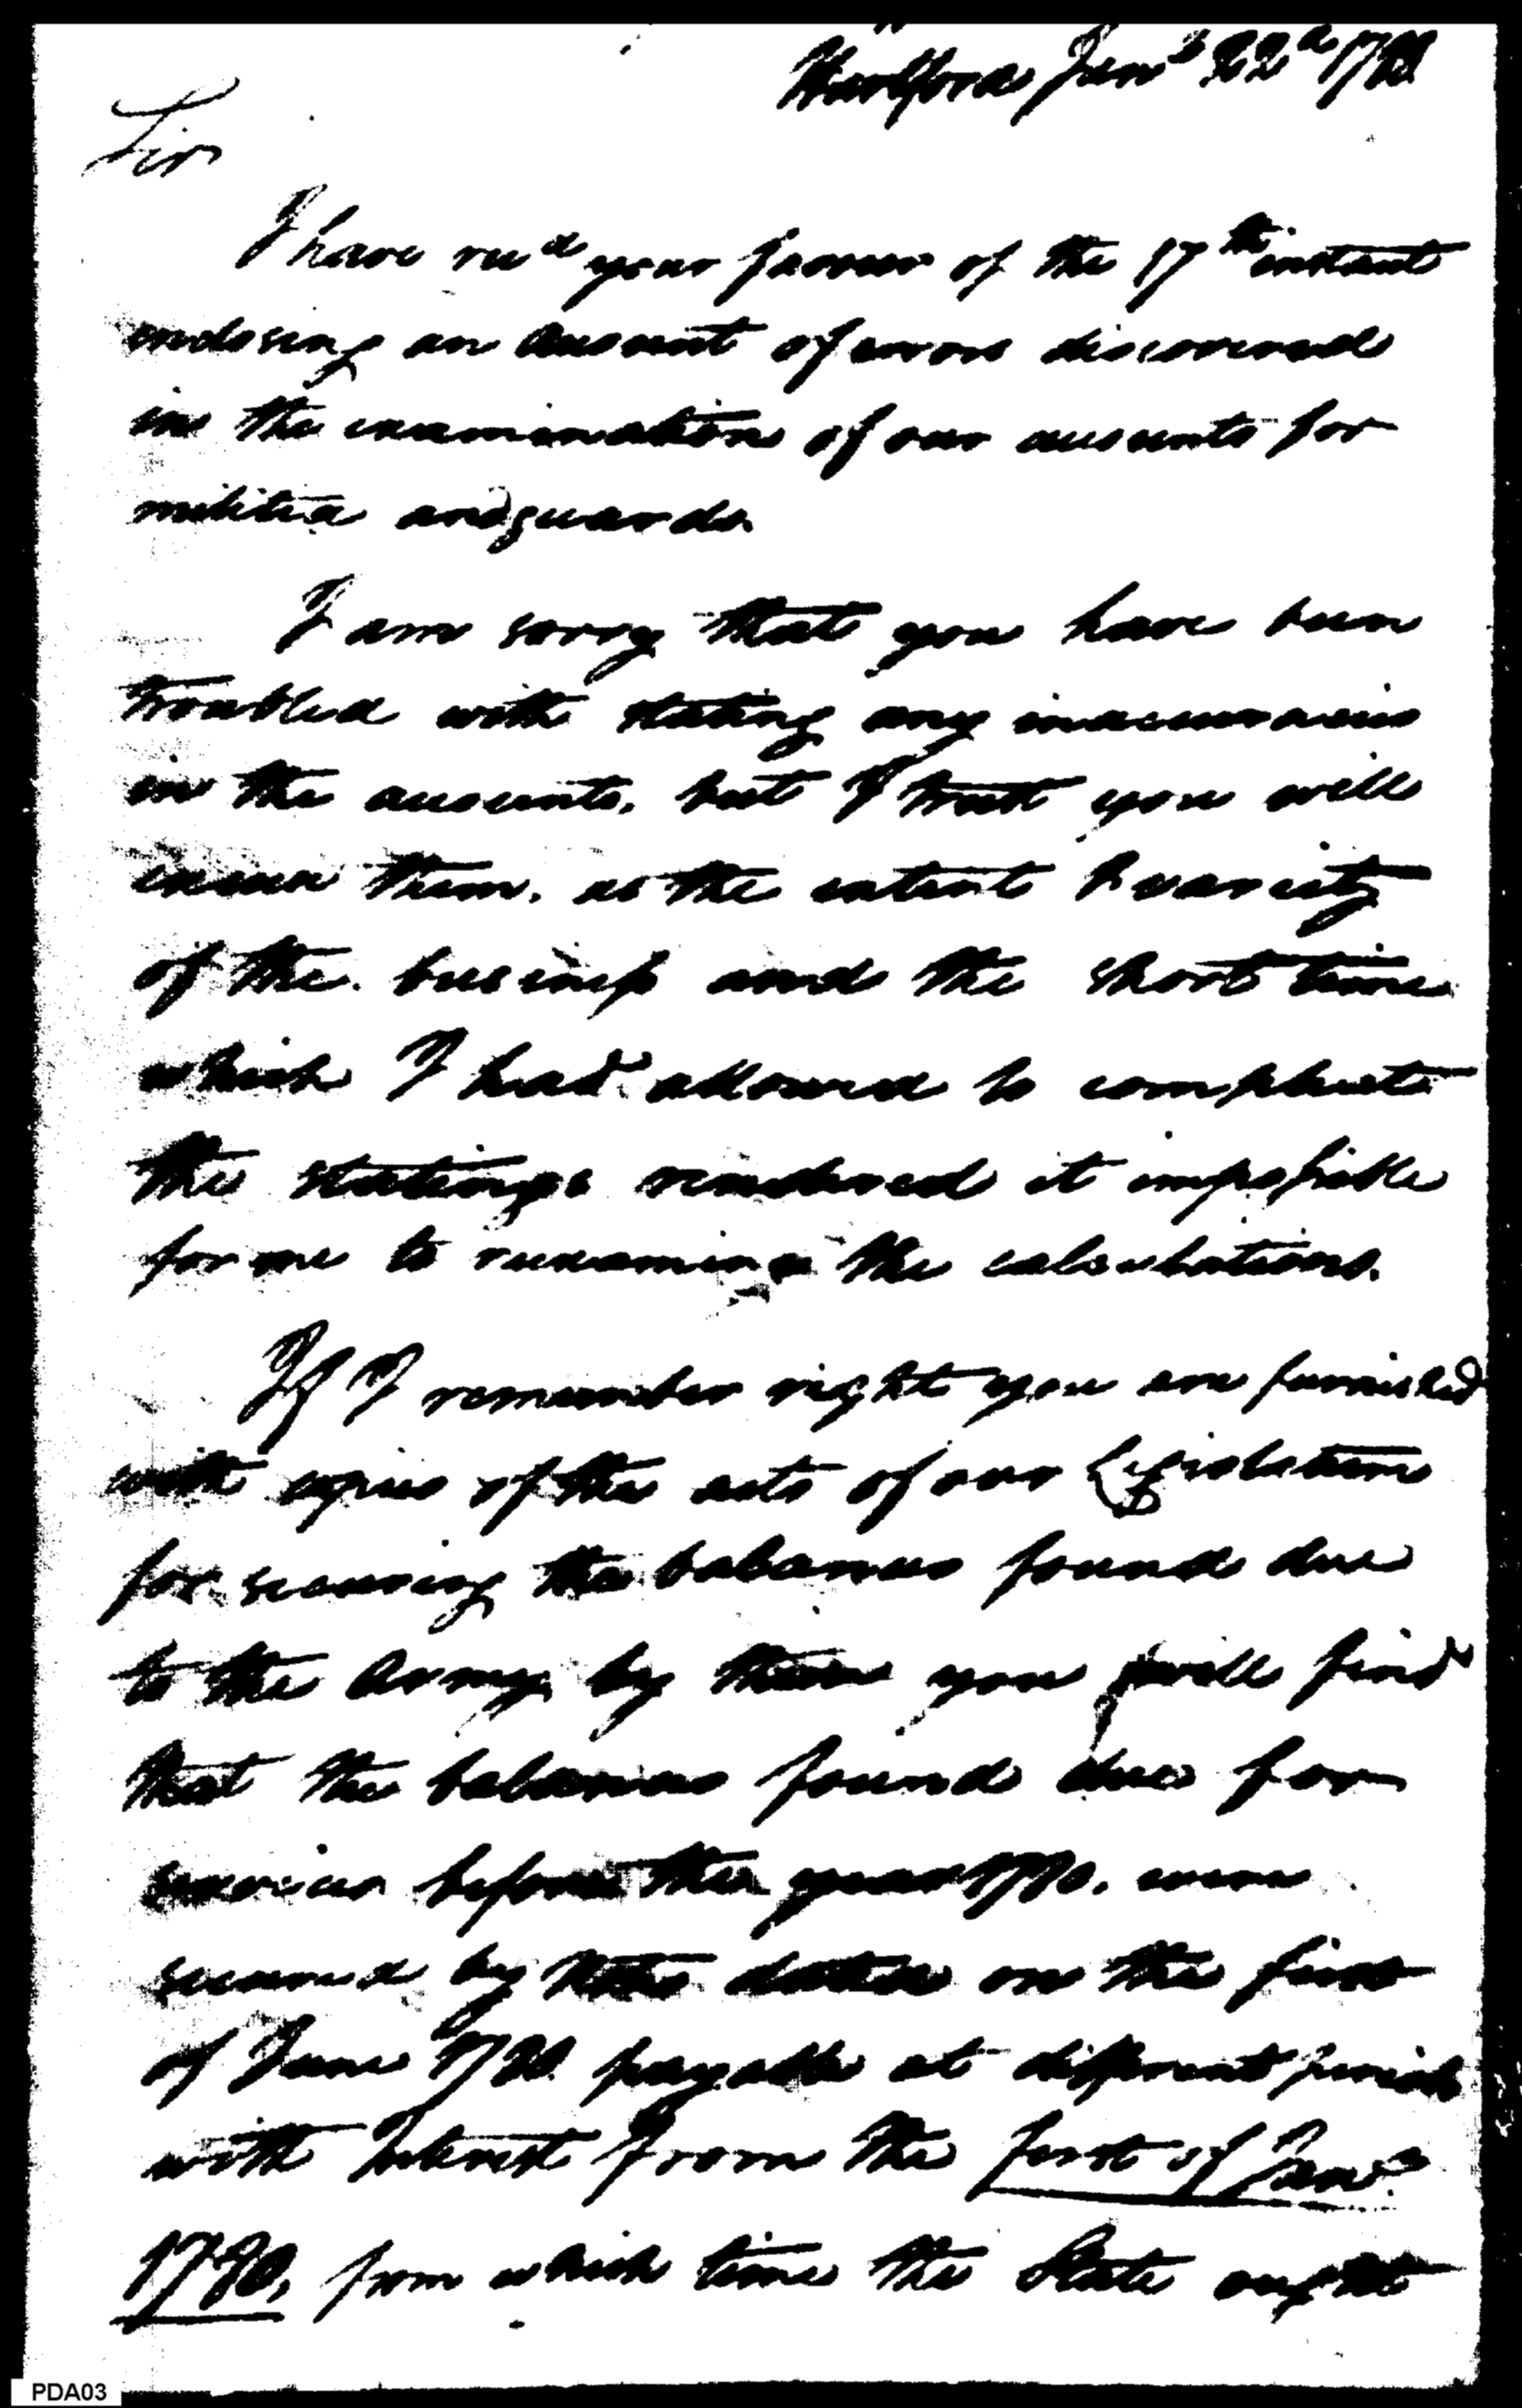 Hartford Jany 22d
Sir
I have recd your favour of the 17th instant
enclosing an Account of errors discovered
in the examination of our accounts for
militia and guards.
I am sorry that you have been
troubled with stating any inaccuracies
in the accounts, but I trust you will
excuse them, as the extent & variety
of the business and the short time
which I had allowed to compleat
the statings rendered it impossible
for me to reexamine the calculations.
If I remember right you are furnished
with copies of the acts of our Legislature
for securing the balances found due
to the Army, by these you will find
that the balances found due for
services before the year 1780. were
secured by Notes dated on the first
of June 1780. payable at different periods
with Interest from the first of Jany
1780, from which time the State ought
PDA03